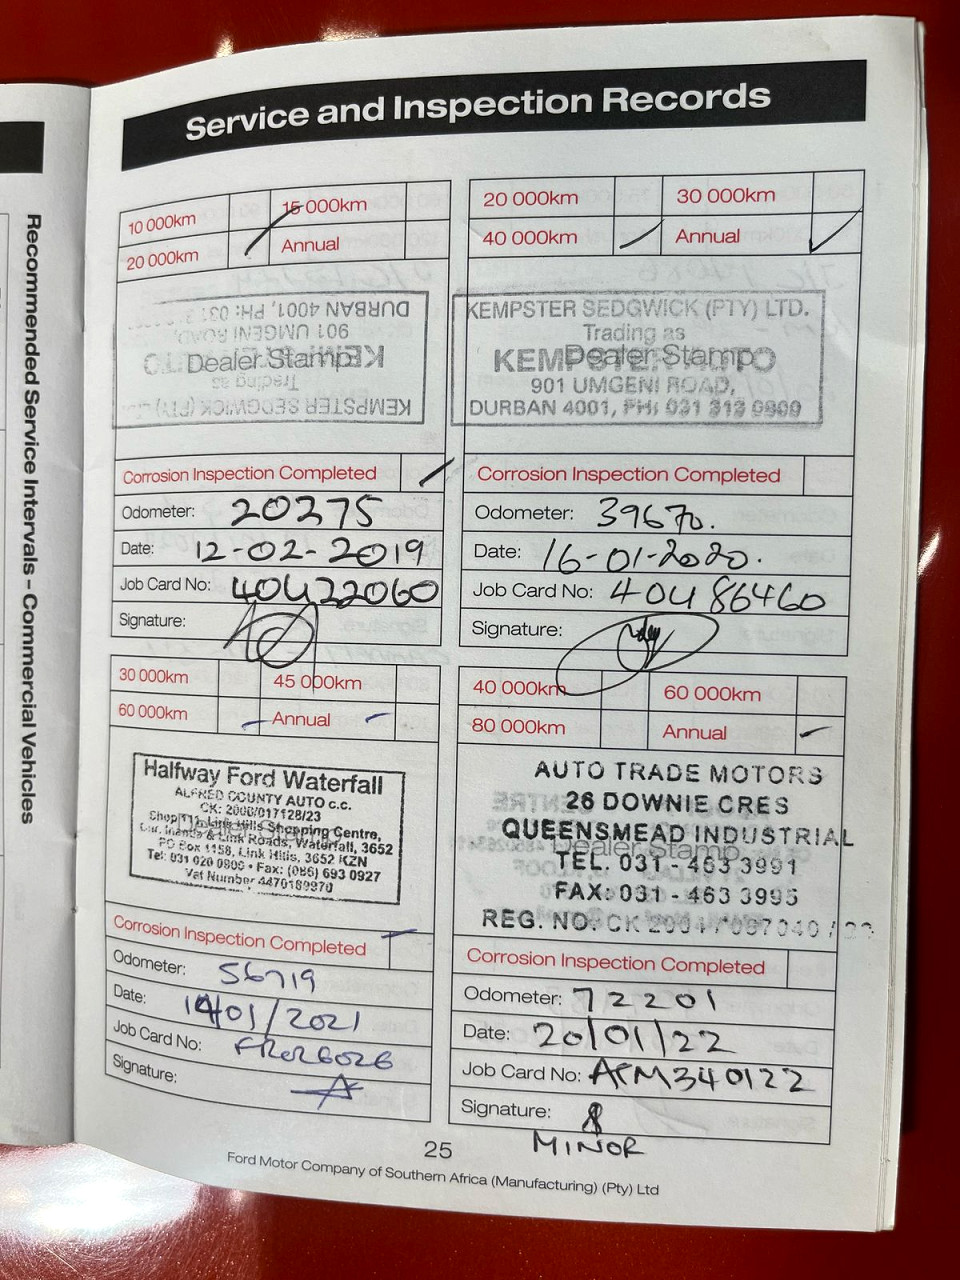 Service and Inspection Records
Recommended Service Intervals – Commercial Vehicles
10 000km
15 000km
20 000km
Annual
DURBAN 4001, PH: 031
901 UMGENI ROAD,
Dealer Stamp
Trading as
KEMPSTER SEDGWICK (PTY)
Corrosion Inspection Completed
Odometer: 20275
Date: 12-02-2019
Job Card No: 40422060
Signature:
20 000km
30 000km
40 000km
Annual
KEMPSTER SEDGWICK (PTY) LTD.
Trading as
Dealer Stamp
901 UMGENI ROAD,
DURBAN 4001, PH: 031 313 0909
Corrosion Inspection Completed
Odometer: 39670.
Date: 16-01-2020.
Job Card No: 40486460
Signature:
30 000km
45 000km
60 000km
Annual
Halfway Ford Waterfall
ALFRED COUNTY AUTO c.c.
CK: 2006/017128/23
Shop 111, Link Hills Shopping Centre,
Cnr. Inanda & Link Roads, Waterfall, 3652
PO Box 1158, Link Hills, 3652 KZN
Tel: 031 020 0806 • Fax: (086) 693 0927
Vat Number 4470189970
Corrosion Inspection Completed
Odometer: 56719
Date: 14/01/2021
Job Card No:
Signature:
40 000km
60 000km
80 000km
Annual
AUTO TRADE MOTORS
26 DOWNIE CRES
QUEENSMEAD INDUSTRIAL
Dealer Stamp
TEL. 031 - 463 3991
FAX: 031 - 463 3995
REG. NO. CK 2004/087040/23
Corrosion Inspection Completed
Odometer: 72201
Date: 20/01/22
Job Card No: ATM340122
Signature:
MINOR
25
Ford Motor Company of Southern Africa (Manufacturing) (Pty) Ltd